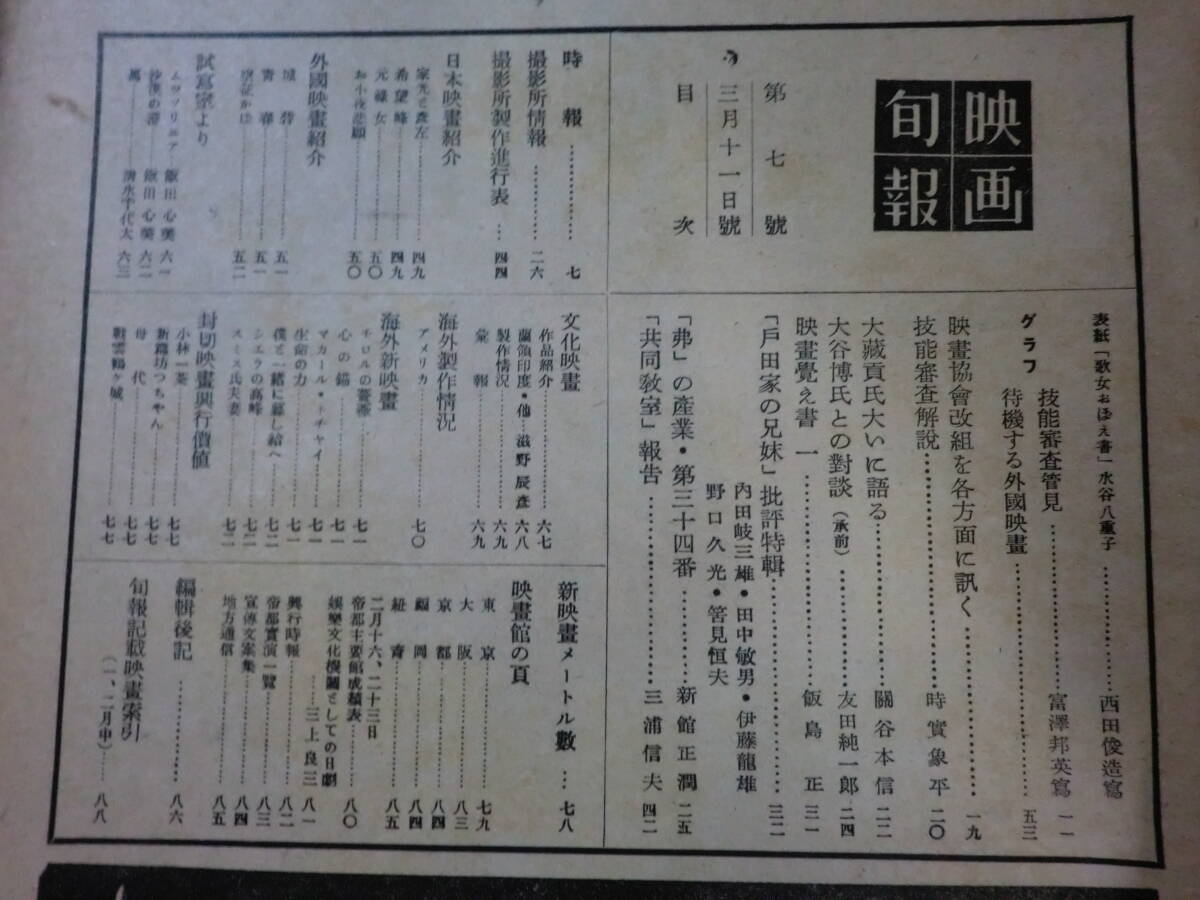 映画旬報
第七號
三月十一日號
目次
表紙「歌女おぼえ書」水谷八重子…………西田俊造寫
グラフ
技能審査管見…………富澤邦英寫 一一
待機する外國映畫…………五三
映畫協會改組を各方面に訊く…………一九
技能審査解説…………時實象平 二〇
大藏貢氏大いに語る…………關谷本信 二二
大谷博氏との對談（承前）…………友田純一郎 二四
映畫覺え書 一…………飯島正 三一
「戶田家の兄妹」批評特輯…………三二
內田岐三雄・田中敏男・伊藤龍雄
野口久光・筈見恒夫
「弗」の產業・第三十四番…………新館正潤 二五
「共同敎室」報告…………三浦信夫 四二
時報…………七
撮影所情報…………二六
撮影所製作進行表…四四
日本映畫紹介
家光と彥左…………四九
希望峰…………四九
元祿女…………五〇
お小夜悲願…………五〇
外國映畫紹介
城砦…………五一
靑春…………五一
五二
試寫室より
ムツソリニア…飯田心美 六一
飯田心美 六二
清水千代太 六三
文化映畫
作品紹介…………六七
蘭領印度・他…滋野辰彥 六八
製作情況…………六九
彙報…………六九
海外製作情況
アメリカ…………七〇
海外新映畫
チロルの薔薇…………七一
心の錨…………七一
マカール・ネチャイ…………七一
生命の力…………七一
僕と一緖に暮し給へ…………七二
シエラの高峰…………七二
スミス氏夫妻…………七二
封切映畫興行價値
小林一茶…………七七
新鐵坊つちやん…………七七
母代…………七七
戰雲鶴ヶ城…………七七
新映畫メートル數…七八
映畫館の頁
東京…………七九
大阪…………八三
京都…………八四
福岡…………八四
紐育…………八五
二月十六、二十三日
帝都主要館成績表…………八〇
娛樂文化機關としての日劇
…………三上良三 八一
興行時報…………八二
帝都實演一覽…………八三
宣傳文案集…………八四
地方通信…………八五
編輯後記…………八六
旬報記載映畫索引
（一、二月中）……八八